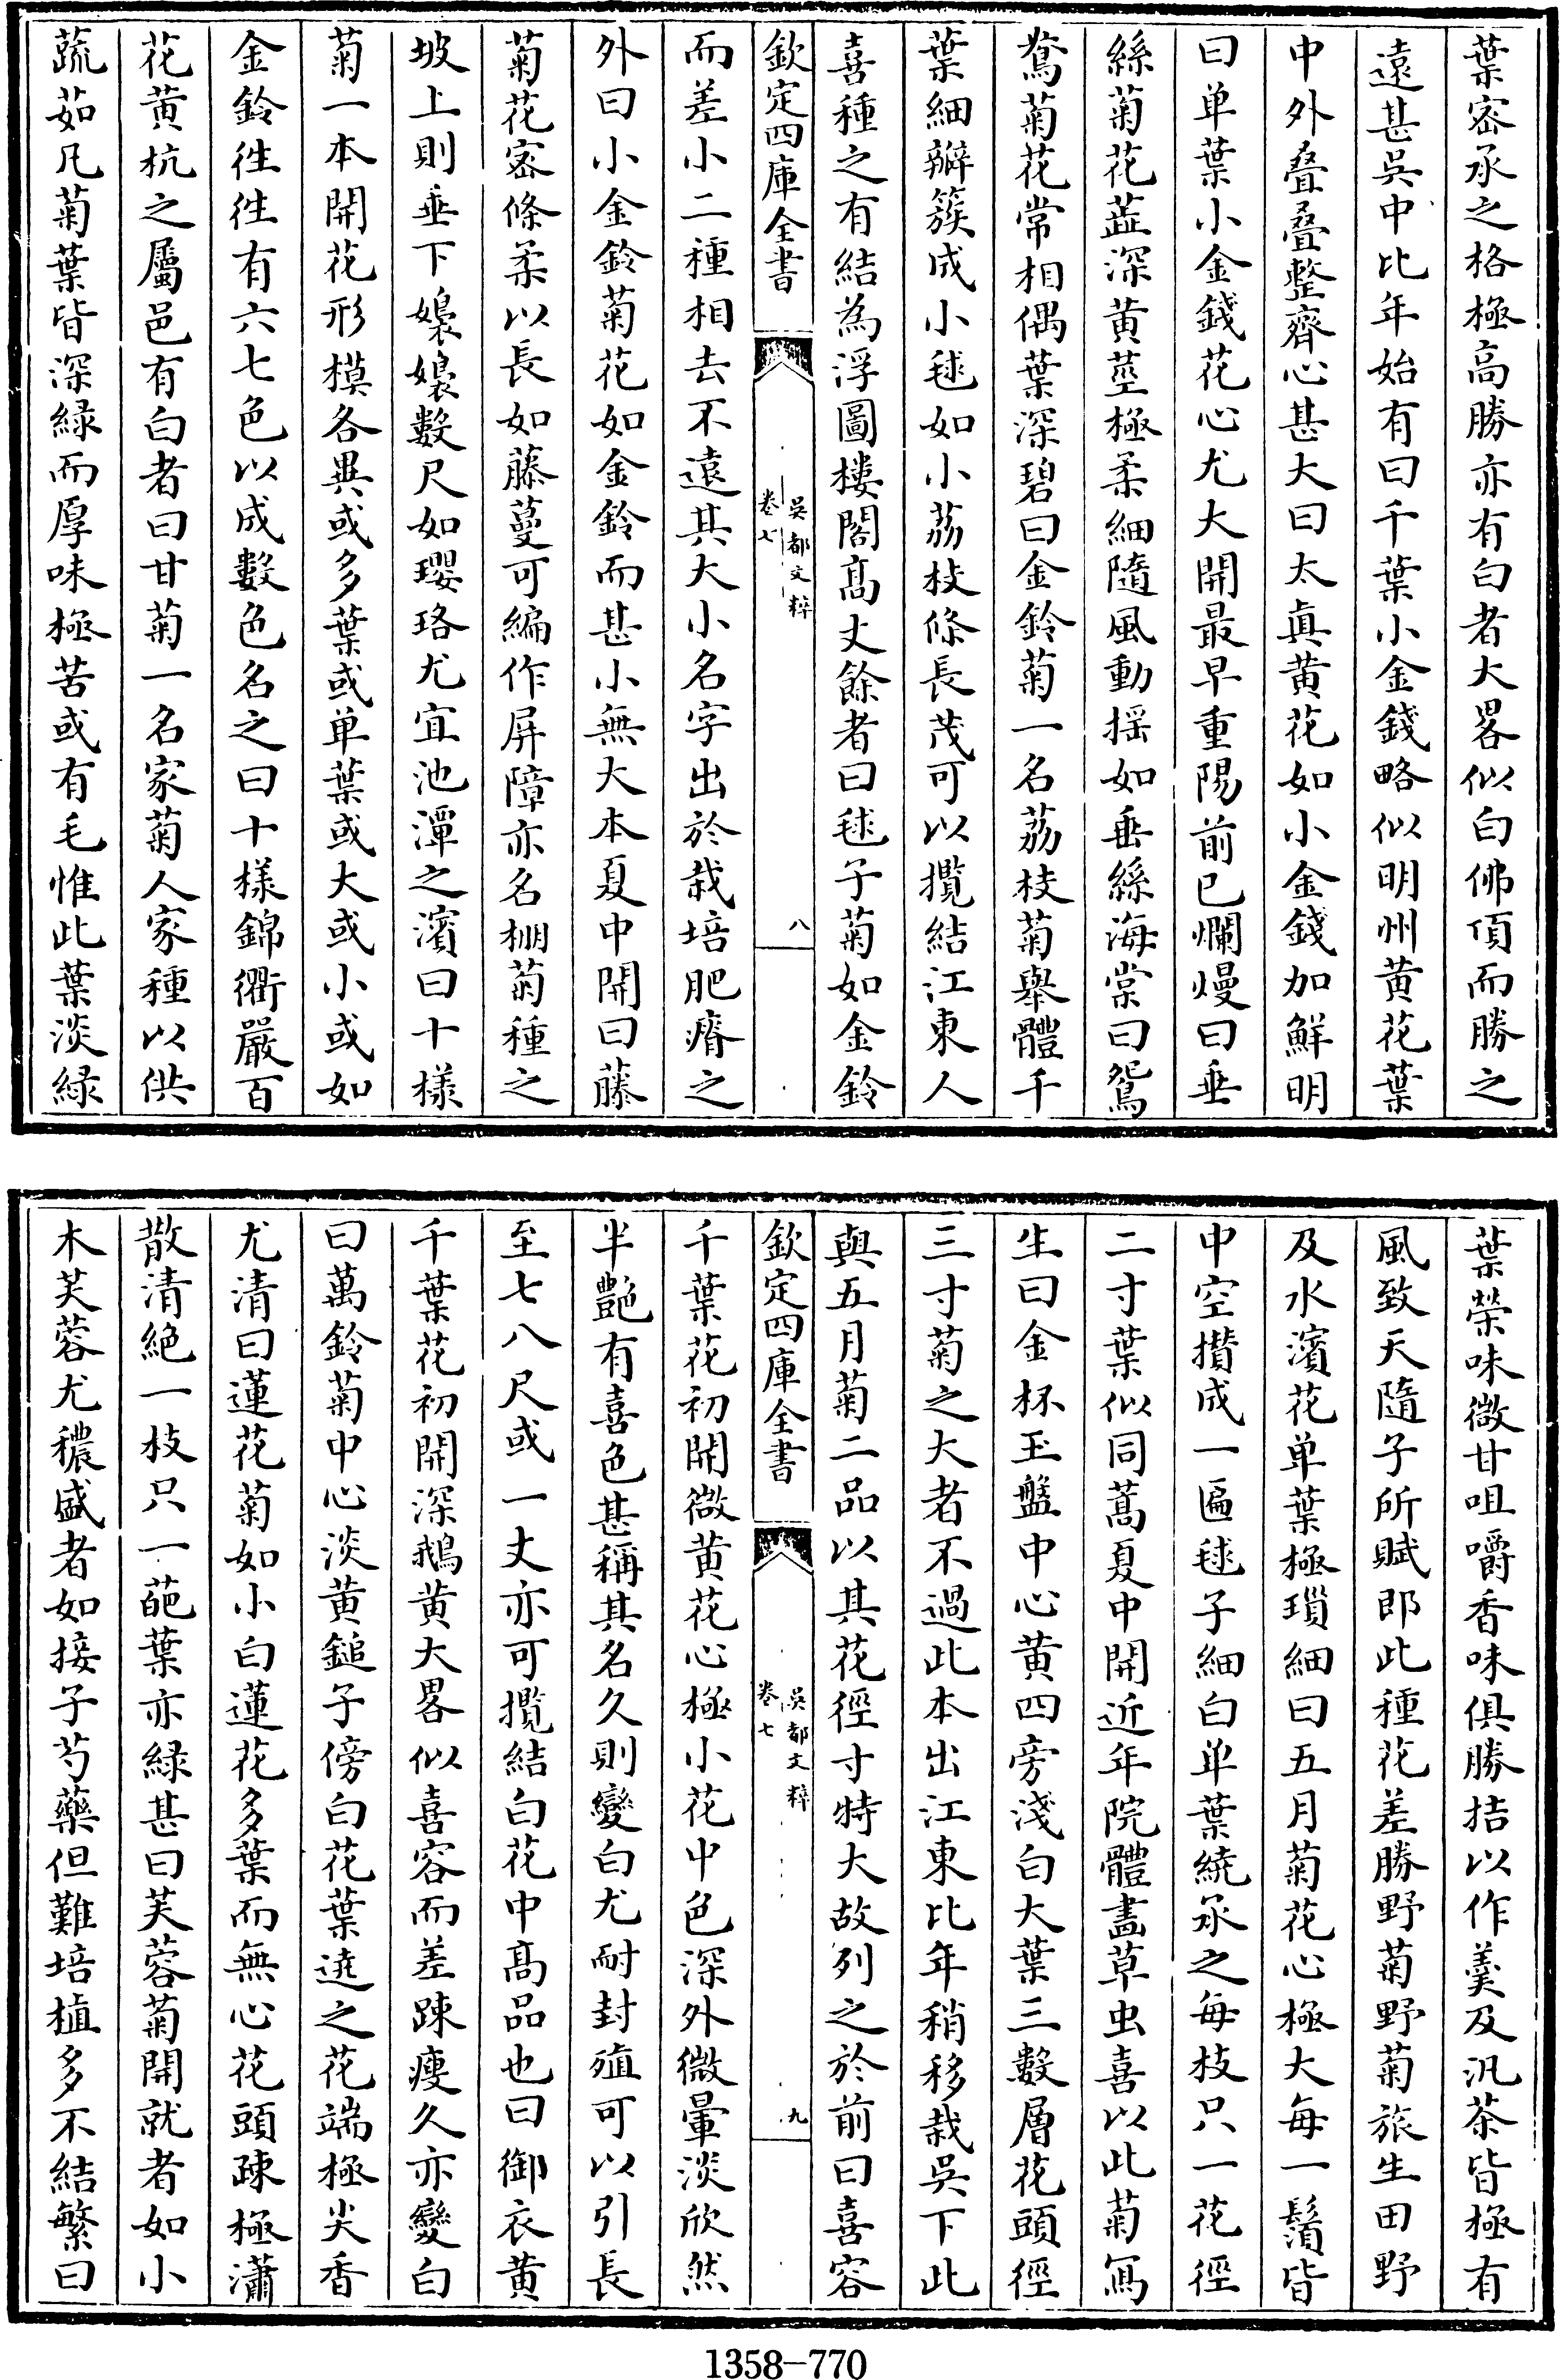 葉宻承之格極高勝亦有白者大畧似白佛頂而勝之
遠甚吳中比年始有曰千葉小金錢略似明州黄花葉
中外叠叠整齊心甚大曰太真黄花如小金錢加鮮明
曰单葉小金錢花心尤大開最早重陽前已爛熳曰垂
絲菊花蘂深黄莖極柔細隨風動揺如垂絲海棠曰鴛
鴦菊花常相偶葉深碧曰金鈴菊一名荔枝菊舉體千
葉細瓣簇成小毬如小荔枝條長茂可以攬結江東人
喜種之有結為浮圖樓閣髙丈餘者曰毬子菊如金鈴
欽定四庫全書
吳都文粹
卷七
八
而差小二種相去不遠其大小名字出於栽培肥瘠之
外曰小金鈴菊花如金鈴而甚小無大本夏中開曰藤
菊花宻條柔以長如藤蔓可編作屏障亦名棚菊種之
坡上則垂下嬝嬝數尺如瓔珞尤宜池潭之濱曰十様
菊一本開花形模各異或多葉或单葉或大或小或如
金鈴徃徃有六七色以成數色名之曰十様錦衢嚴百
花黄杭之屬邑有白者曰甘菊一名家菊人家種以供
蔬茹凡菊葉皆深緑而厚味極苦或有毛惟此葉淡緑
葉榮味微甘咀嚼香味俱勝拮以作羹及汎茶皆極有
風致天隨子所賦即此種花差勝野菊野菊旅生田野
及水濱花单葉極瑣細曰五月菊花心極大每一鬚皆
中空攅成一匾毬子細白单葉繞承之每枝只一花徑
二寸葉似同蒿夏中開近年院體畵草虫喜以此菊冩
生曰金杯玉盤中心黄四旁淺白大葉三數層花頭徑
三寸菊之大者不過此本出江東比年稍移栽吳下此
與五月菊二品以其花徑寸特大故列之於前曰喜容
欽定四庫全書
吳都文粹
卷七
九
千葉花初開微黄花心極小花中色深外微暈淡欣然
半艷有喜色甚稱其名久則變白尤耐封殖可以引長
至七八尺或一丈亦可攬結白花中髙品也曰御衣黄
千葉花初開深鵝黄大畧似喜容而差踈瘦久亦變白
曰萬鈴菊中心淡黄鎚子傍白花葉遶之花端極尖香
尤清曰蓮花菊如小白蓮花多葉而無心花頭踈極瀟
散清絶一枝只一葩葉亦緑甚曰芙蓉菊開就者如小
木芙蓉尤穠盛者如接子芍藥但難培植多不結繁曰
1358-770